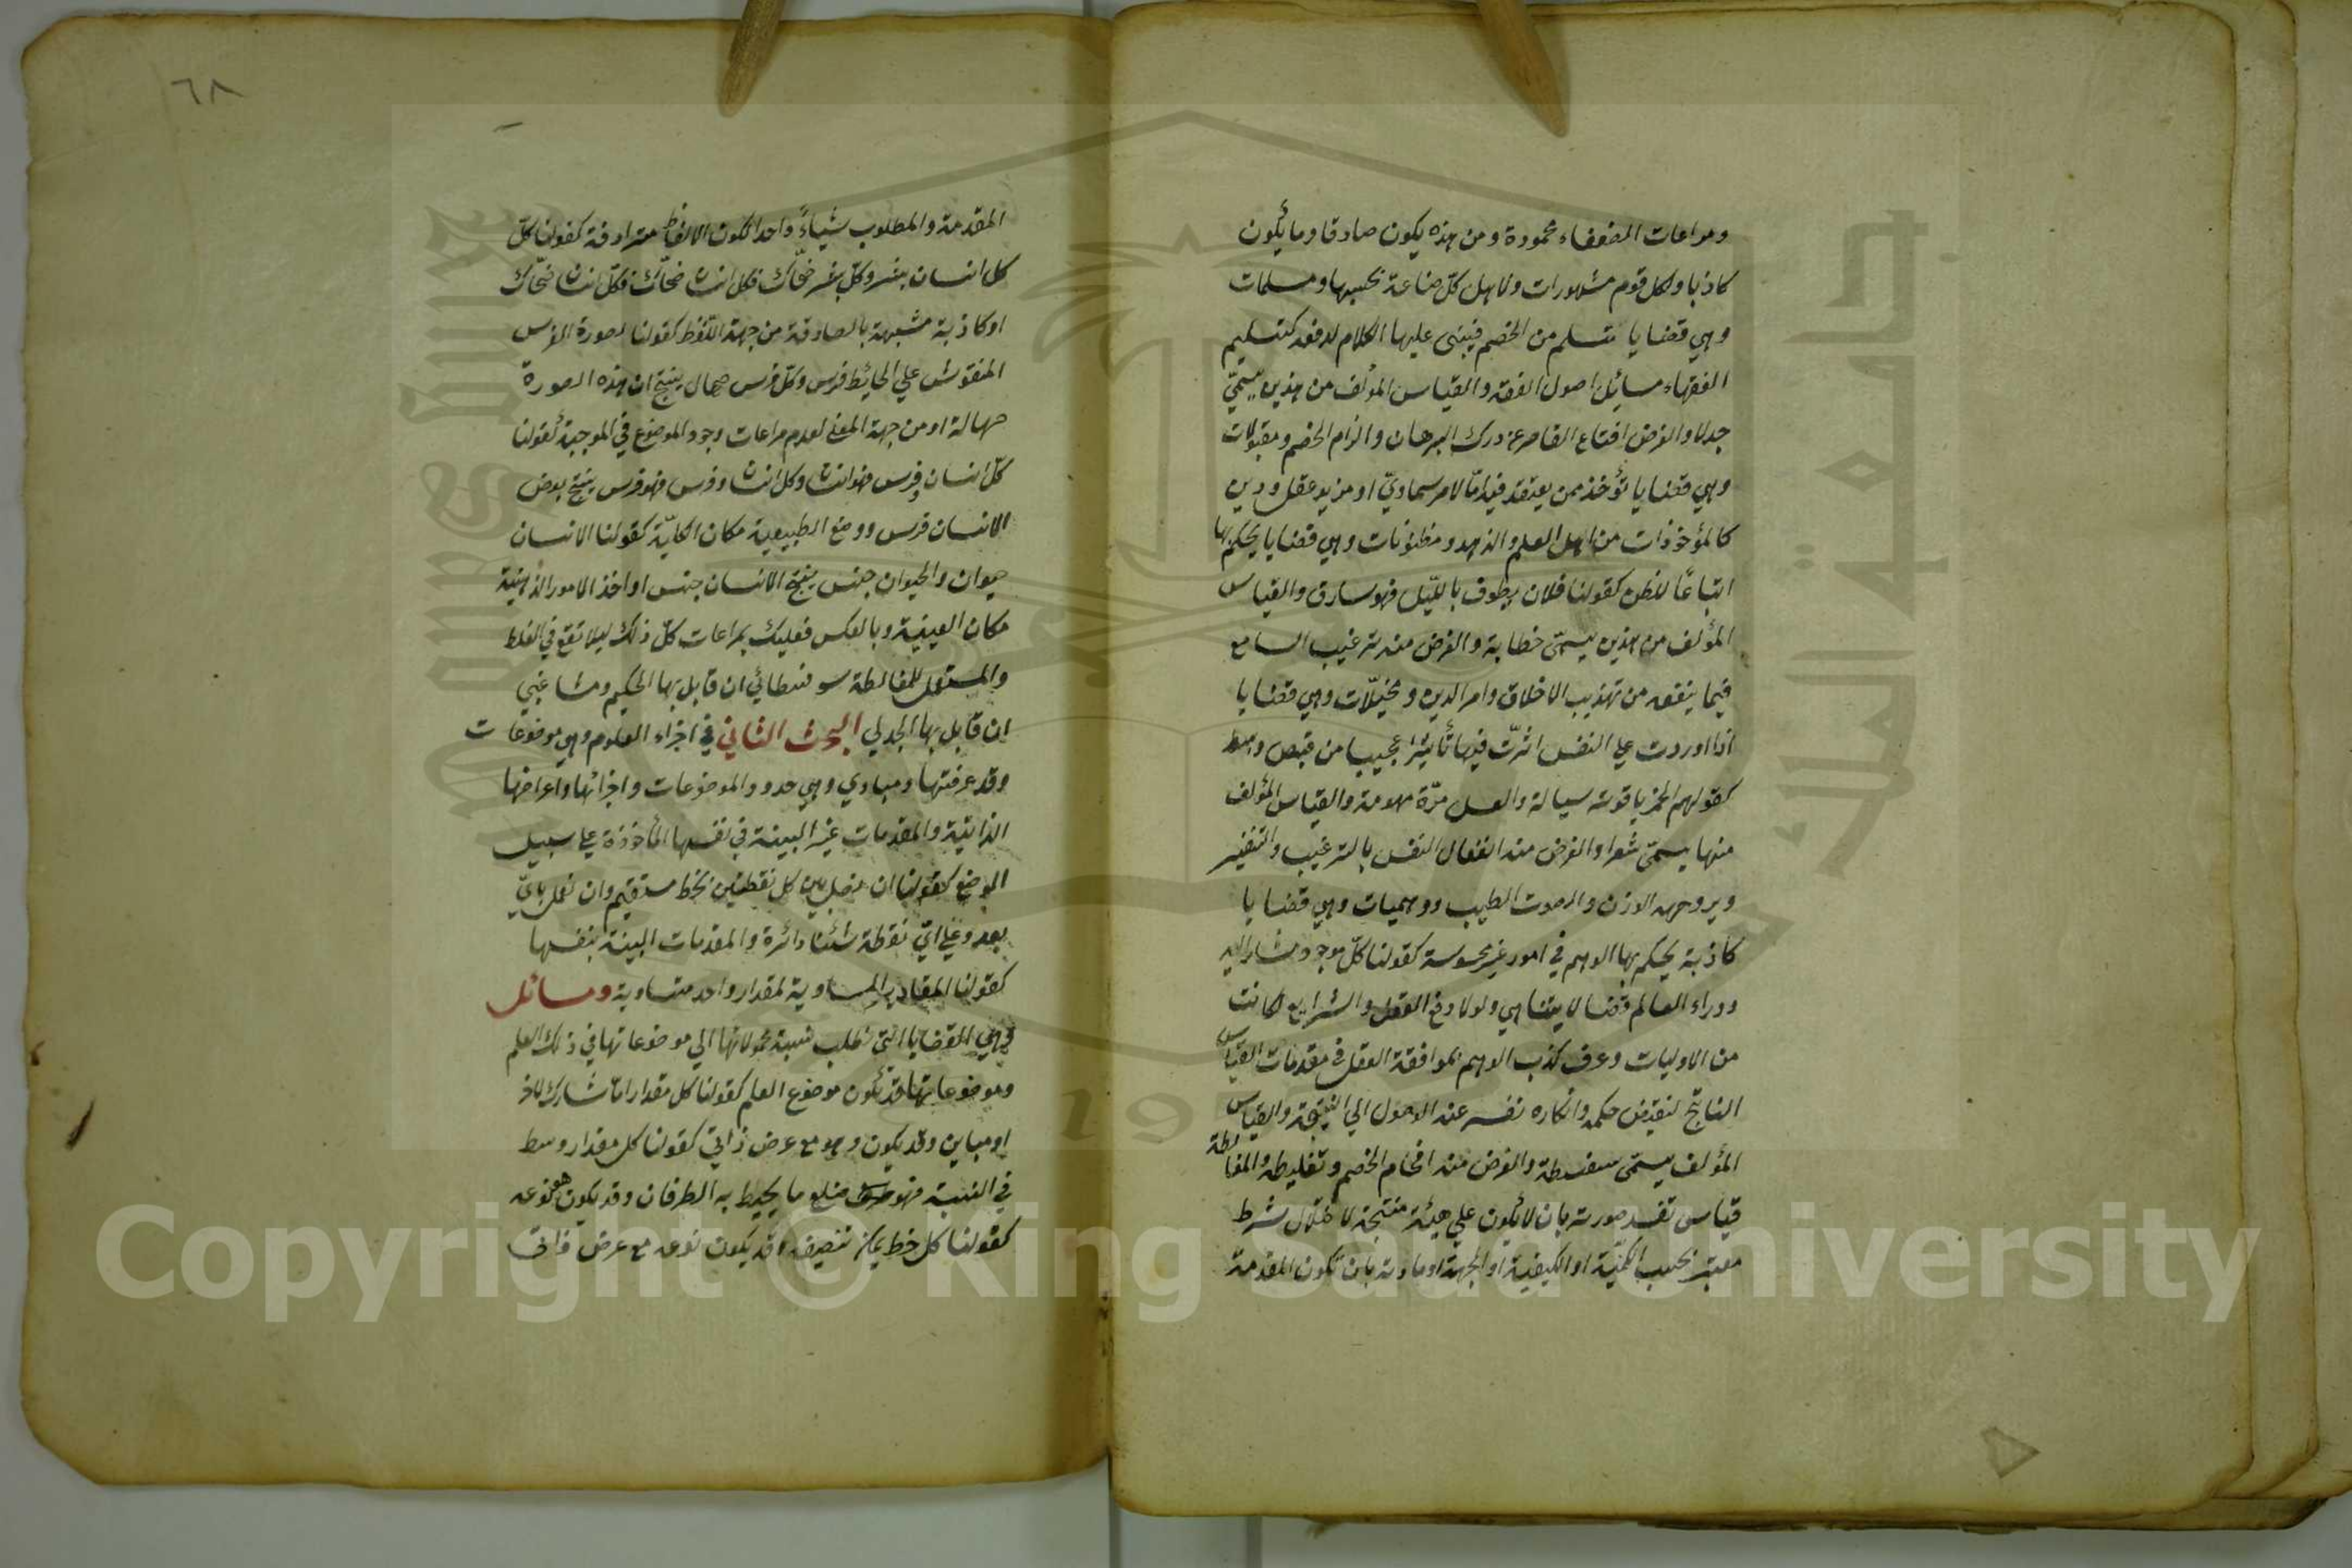 ومراعات الضعفاء محمودة ومن هذه يكون صادقا وما يكون
كاذبا ولكل قوم مشهورات ولاهل كل صناعة بحسبها ومسلمات
وهي قضايا تتسلم من الخصم فيبنى عليها الكلام لدفعه كتسليم
الفقهاء مسائل اصول الفقه والقياس المؤلف من هذين يسمّى
جدلا والغرض اقناع القاصر عن درك البرهان والزام الخصم ومقبولات
وهي قضايا تؤخذ ممن يعتقد فيه امّا لامر سماويّ او مزيد عقل ودين
كالمؤخوذات من اهل العلم والزهد ومظنونات وهي قضايا يحكم بها
اتباعًا للظن كقولنا فلان يطوف بالليّل فهو سارق والقياس
المؤلف من هذين يسمّى خطابة والغرض منه ترغيب السامع
فيما ينفعه من تهذيب الاخلاق وامر الدين ومخيّلات وهي قضايا
اذا اوردت علي النفس اثرّت فيها تأثيرا عجيبا من قبض وبسط
كقولهم الخمر ياقوتة سيالة والعسل مرّة مهومة والقياس المؤلف
منها يسمّى شعرا والغرض منه انفعال النفس بالترغيب والتنفير
ويروجه الوزن والصوت الطيب ووهميات وهي قضايا
كاذبة يحكم بها الوهم في امور غير محسوسة كقولنا كلّ موجود مشار اليه
ووراء العالم فضا لا يتناهي ولولا دفع العقل والشرايع لكانت
من الاوليات وعرف كذب الوهم بموافقة العقل في مقدمات القياس
الناتج لنقيض حكمه وانكاره نفسه عند الوصول الي النتيجة والقياس
المؤلف يسمّى سفسطة والغرض منه افحام الخصم وتغليطه والمغالطة
قياس تفسد صورته بان لا يكون علي هيئة منتجة لاختلال شرط
معتبر بحسب الكميّة او الكيفية او الجهة او مادته بان تكون المقدمة
٦٨
المقدمة والمطلوب شياءً واحدا لكون الالفاظ مترادفة كقولنا كلّ
كل انسان بشر وكلّ بشر ضحّاك فكل انسان ضحّاك فكلّ انسان ضحّاك
او كاذبة مشبهة بالصادقة من جهة اللّفظ كقولنا لصورة الفرس
المنقوش علي الحائيط فرس وكلّ فرس صهال ينتج ان هذه الصورة
صهالة او من جهة المعنى لعدم مراعات وجود الموضوع في الموجبة كقولنا
كلّ انسان وفرس فهو انسان وكل انسان وفرس فهو فرس ينتج بعض
الانسان فرس ووضع الطبيعية مكان الكليّة كقولنا الانسان
حيوان والحيوان جنس ينتج الانسان جنس او اخذ الامور الذهنية
مكان العينية وبالعكس فعليك بمراعات كلّ ذلك ليلا تقع في الغلط
والمستعمل للمغالطة سوفسطائي ان قابل بها الحكيم ومشاغبي
ان قابل بها الجدلي البحث الثاني في اجزاء العلوم وهي موضوعات
وقد عرفتها ومبادي وهي حدود الموضوعات واجزائها واعراضها
الذاتيّة والمقدمات غير البينة في نفسها المأخوذة علي سبيل
الوضع كقولنا ان نصل بين كل نقطتين بخط مستقيم وان نعمل بايّ
بعد وعلي ايّ نقطة شئنا دائرة والمقدمات البينة بنفسها
كقولنا المقادير المساوية لمقدار واحد متساوية ومسائل
وهي القضايا التي تطلب نسبة محمولاتها الي موضوعاتها في ذلك العلم
وموضوعاتها قد يكون موضوع العلم كقولنا كل مقدار امّا مشارك للاخر
او مباين وقد يكون وهو مع عرض ذاتيّ كقولنا كل مقدار وسط
في النسبة فهو ضلع ما يحيط به الطرفان وقد يكون هو نوعه
كقولنا كل خط يمكن تنصيفه وقد يكون نوعه مع عرض ذاتي
Copyright © King Saud University
جامعة الملك سعود
King Saud University
19